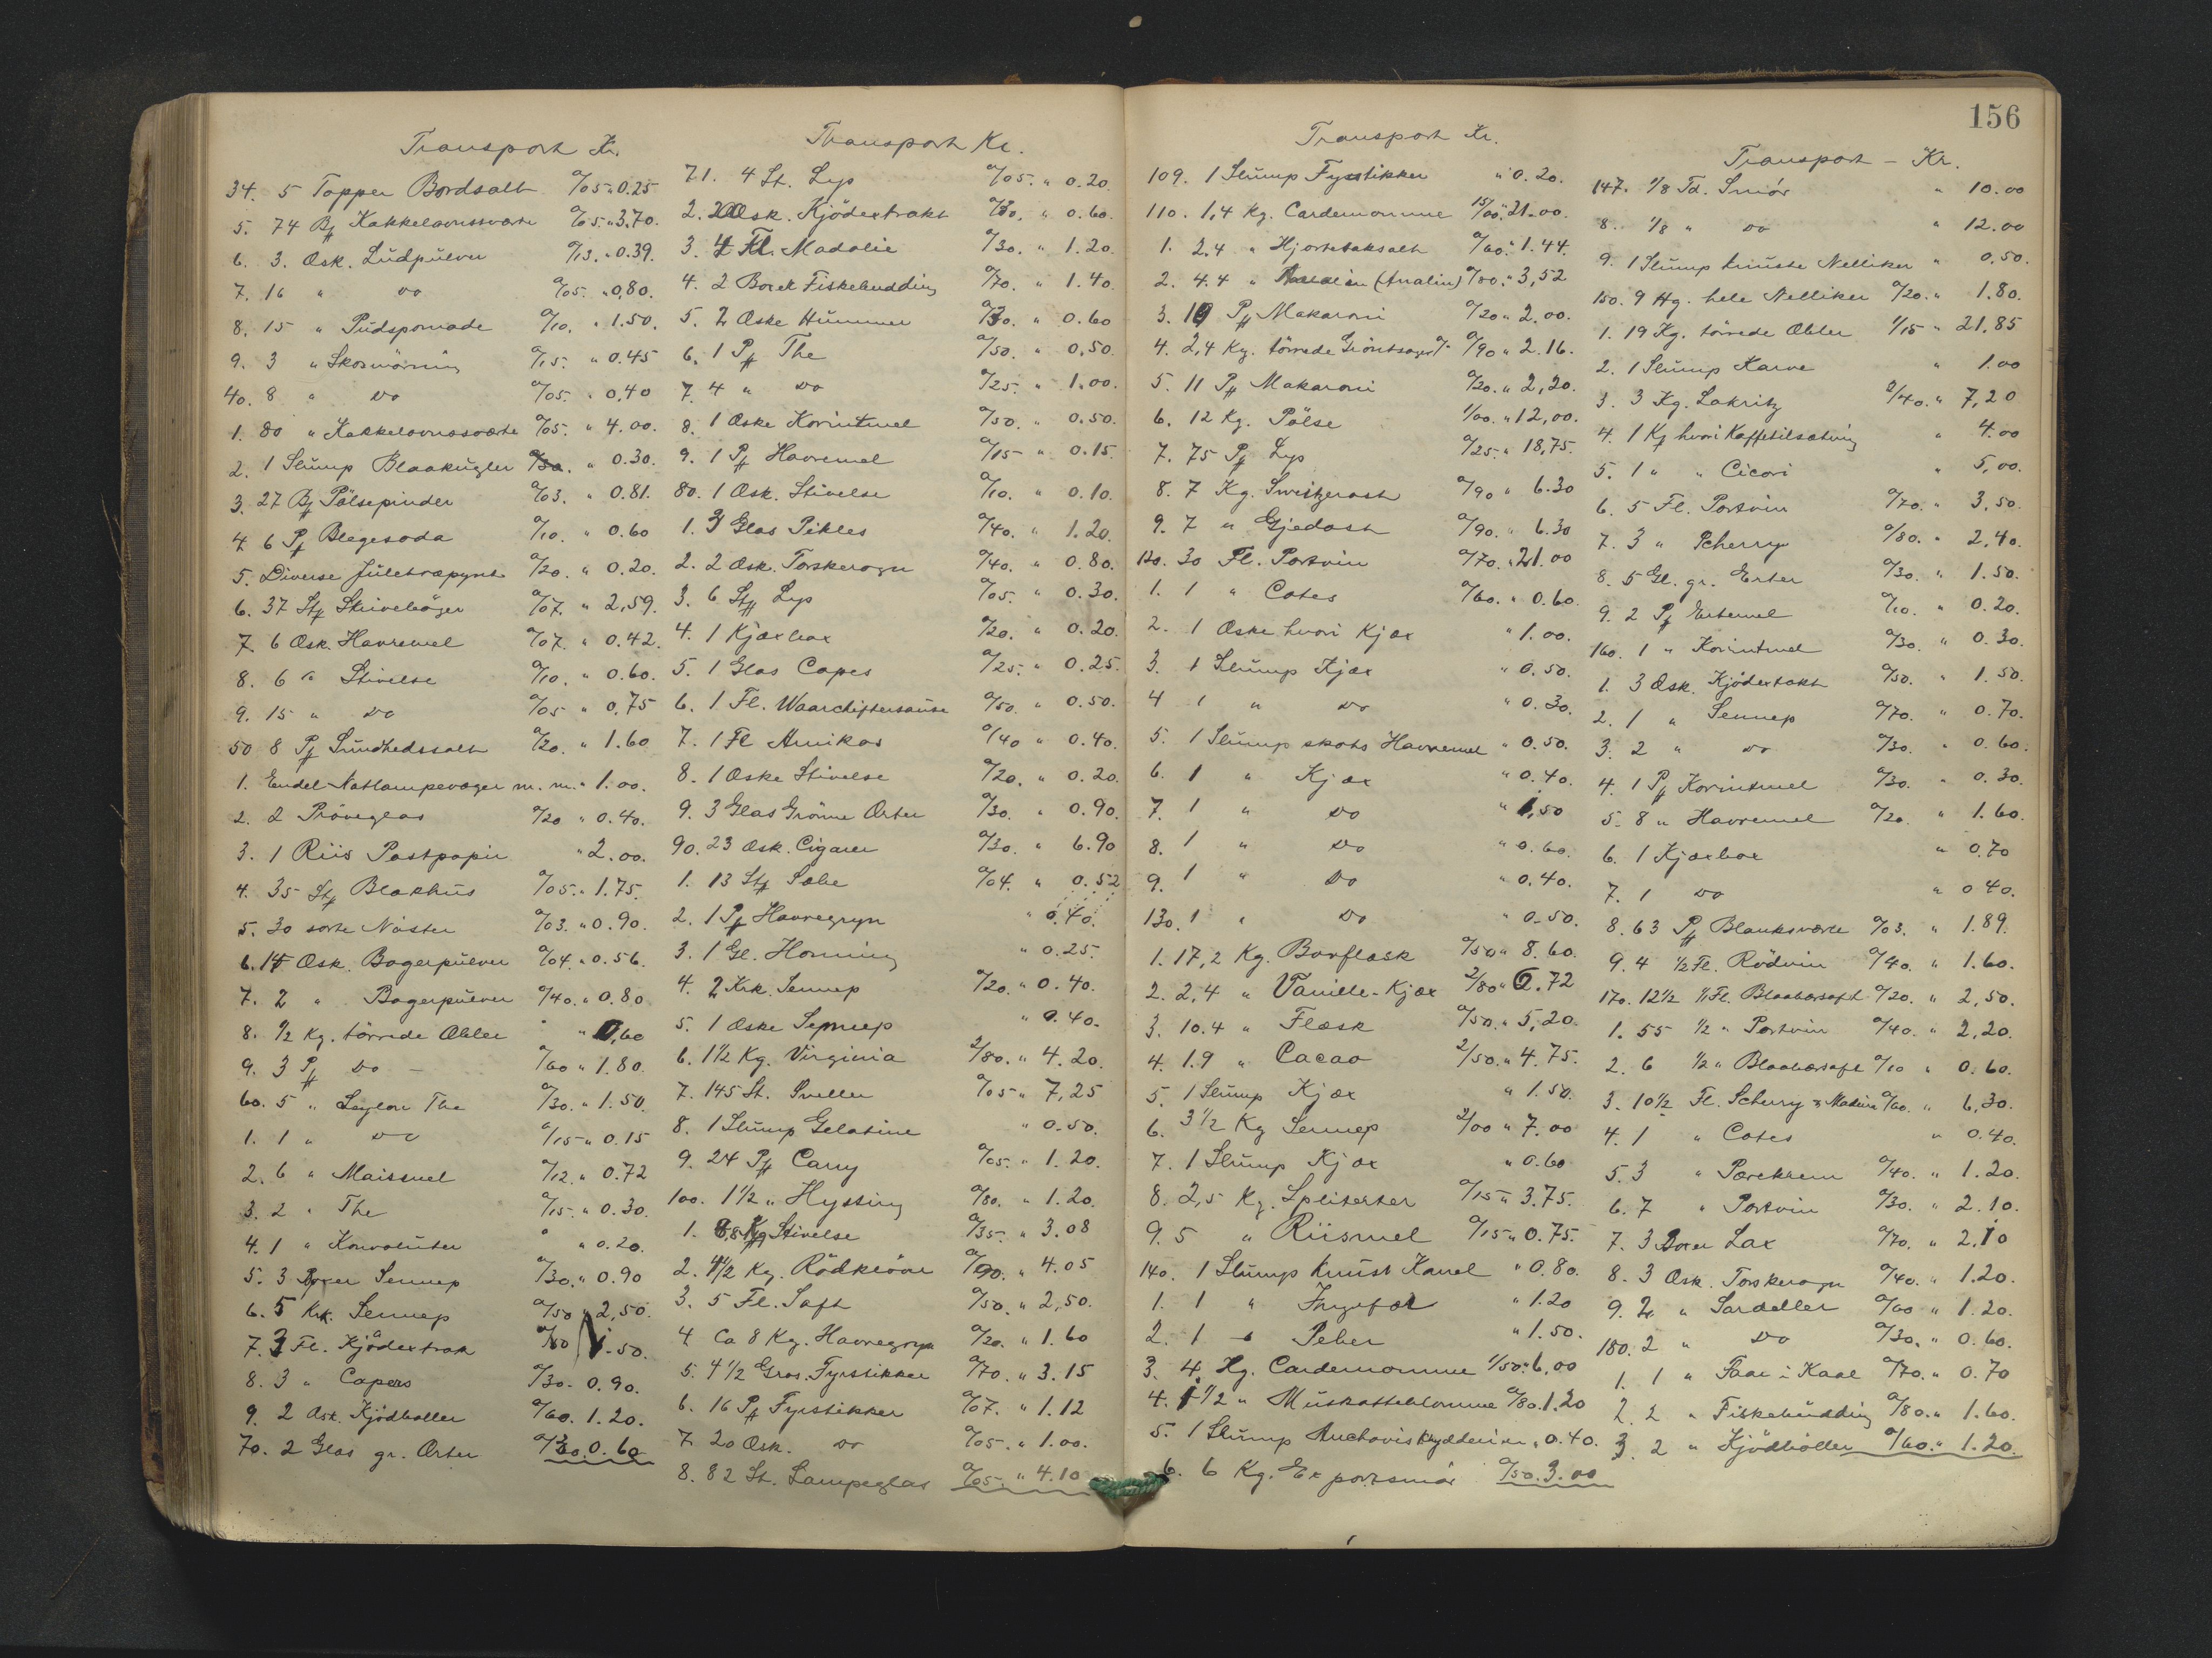 156
Transport Kr.
34. 5 Topper Bordsalt a/05 " 0.25
5. 74 Pf Kakkelovnssværte a/05. " 3.70.
6. 3. Æsk. Ludpulver a/13. " 0.39.
7. 16 " do a/05. " 0,80.
8. 15 " Pudspomade a/10. " 1.50.
9. 3 " Skosmörning a/15. " 0.45
40. 8 " do a/05. " 0,40
1. 80 " Kakkelovnssværte a/05. " 4.00.
2. 1 Slump Blaakugler " 0.30.
3. 27 Pf Pölsepinder a/03. " 0.81.
4. 6 Pf Blegesoda a/10. " 0.60
5. Diverse Juletræpynt a/20. " 0.20.
6. 37 Stf Skivebøger a/07. " 2,59.
7. 6 Æsk. Havremel a/07. " 0.42.
8. 6 " Stivelse a/10. " 0.60.
9. 15 " do a/05 " 0,75
50 8 Pf Sundhedssalt a/20. " 1.60
1. Endel Natlampevæger m. m. " 1.00.
2. 2 Pröveglas a/20 " 0.40.
3. 1 Riis Postpapir " 2.00.
4. 35 Stf Blækhus a/05. " 1.75.
5. 30 sorte Nöster a/03. " 0.90.
6. 14 Æsk. Bagerpulver a/04. " 0.56.
7. 2 " Bagerpulver a/40. " 0.80
8. 1/2 Kg. törrede Æbler " 0,60
9. 3 Pf do - a/60 " 1.80.
60. 5 " Ceylon The a/30. " 1.50.
1. 1 " do a/15 " 0.15
2. 6 " Maismel a/12. " 0.72
3. 2 " The a/15. " 0.30.
4. 1 " Konvolutter " 0.20.
5. 3 Boxer Sennep a/30. " 0.90
6. 5 Krk. Sennep a/50 " 2,50.
7. 3 Fl. Kjödextrakt a/50 1.50.
8. 3 " Capers a/30. 0.90.
9. 2 Æsk. Kjödboller a/60. 1.20.
70. 2 Glas gr. Ærter a/30 0.60
Transport Kr.
71. 4 St. Lys a/05. " 0.20.
2. 2 Æsk. Kjödextrakt a/30. " 0.60.
3. 4 Fl. Madolie a/30. " 1.20.
4. 2 Boxer Fiskebudding a/70. " 1.40.
5. 2 Æske Hummer a/30. " 0.60
6. 1 Pf The a/50. " 0,50.
7. 4 " do a/25. " 1.00.
8. 1 Æske Korintmel a/50. " 0.50.
9. 1 Pf Havremel a/15 " 0.15.
80. 1 Æsk. Stivelse a/10. " 0.10.
1. 3 Glas Pikles a/40. " 1.20.
2. 2 Æsk. Torskerogn a/40. " 0.80.
3. 6 Stf Lys a/05. " 0.30.
4. 1 Kjæxbox a/20. " 0.20.
5. 1 Glas Capes a/25. " 0.25.
6. 1 Fl. Waarchiftersause a/50. " 0.50.
7. 1 Fl Arnikas a/40 " 0.40.
8. 1 Æske Stivelse a/20. " 0.20.
9. 3 Glas Grönne Ærter a/30. " 0.90.
90. 23 Æsk. Cigarer a/30. " 6.90
1. 13 Stf Sæbe a/04. " 0.52
2. 1 Pf Havregryn " 0.40.
3. 1 Gl. Honning " 0.25.
4. 2 Krk. Sennep a/20. " 0.40.
5. 1 Æske Sennep " 0.40.
6. 1 1/2 Kg. Virginia 2/80. " 4.20.
7. 145 St. Sveller a/05 " 7,25
8. 1 Slump Gelatine " 0.50.
9. 24 Pf Carry a/05. " 1.20.
100. 1 1/2 " Hyssing a/80. " 1.20.
1. 8,8 Kg Stivelse a/35. " 3.08
2. 4 1/2 Kg. Rödkröve a/90. " 4.05
3. 5 Fl. Saft a/50. " 2,50.
4 Ca 8 Kg. Havregryn a/20. " 1.60
5. 4 1/2 Gros. Fyrstikker a/70. " 3.15
6. 16 Pf Fyrstikker a/07. " 1.12
7. 20 Æsk. do a/05. " 1.00.
8. 82 St. Lampeglas a/05. " 4.10
Transport Kr.
109. 1 Slump Fyrstikker " 0.20.
110. 1,4 Kg. Cardemomme 15/00. " 21.00.
1. 2.4 " Hjortetaksalt a/60. " 1.44.
2. 4.4 " (Analin) a/80. " 3,52
3. 10 Pf Makaroni a/20 " 2.00.
4. 2,4 Kg. törrede Gröntsager a/90 " 2.16.
5. 11 Pf Makaroni a/20. " 2,20.
6. 12 Kg. Pölse 1/00. " 12,00.
7. 75 Pf Lys a/25. " 18,75.
8. 7 Kg. Sweitzerost a/90 " 6.30
9. 7 " Gjedost a/90. " 6.30
120. 30 Fl. Portvin a/70. " 21.00
1. 1 " Cotes a/60. " 0.60.
2. 1 Æske hvori Kjæx " 1.00.
3. 1 Slump Kjæx " 0.50.
4 1 " do " 0.30.
5. 1 Slump skots Havremel " 0.50.
6. 1 " Kjæx " 0.40.
7. 1 " do " 1,50
8. 1 " do " 0.60.
9. 1 " do " 0.40.
130. 1 " do " 0.50.
1. 17,2 Kg. Borflæsk a/50 " 8.60.
2. 2,4 " Vanille-Kjæx 2/80 " 6.72
3. 10.4 " Flæsk a/50. " 5,20.
4. 1.9 " Cacao 2/50. " 4.75.
5. 1 Slump Kjæx " 1.50.
6. 3 1/2 Kg Sennep 2/00 " 7.00
7. 1 Slump Kjæx " 0.60
8. 2,5 Kg. Spliterter a/15 " 3.75.
9. 5 " Riismel a/15 " 0.75.
140. 1 Slump knust Kanel " 0.80.
1. 1 " Ingefær " 1.20
2. 1 " Peber " 1.50.
3. 4 Hg. Cardemomme 1/50 " 6,00
4. 1 1/2 " Muskatteblomme a/80. 1.20
5. 1 Slump Anchoviskrydderier " 0.40.
6. 6 Kg. Exportsmör a/50. 3.00
Transport - Kr.
147. 1/8 Td. Smör " 10.00
8. 1/8 " do " 12.00
9. 1 Slump knuste Nelliker " 0,50.
150. 9 Hg. hele Nelliker a/20. " 1.80.
1. 19 Kg. törrede Æbler 1/15 " 21.85
2. 1 Slump Karve " 1.00
3. 3 Kg. Lakritz 2/40. " 7,20
4. 1 Kf hvori Kaffetilsætning " 4.00
5. 1 " " Cicori " 5,00.
6. 5 Fl. Portvin a/70. " 3,50.
7. 3 " Scherry a/80. " 2,40.
8. 5 Gl. gr. Erter a/30. " 1.50.
9. 2 Pf Ertemel a/10. " 0.20.
160. 1 " Korintmel a/30. " 0.30.
1. 3 Æsk. Kjödextakt a/50. " 1.50.
2. 1 " Sennep a/70. " 0.70.
3. 2 " do a/30. " 0.60.
4. 1 Pf Korintmel a/30. " 0.30.
5. 8 " Havremel a/20. " 1.60.
6. 1 Kjæxbox " 0,70
7. 1 do " 0 40.
8. 63 Pf Blanksværte a/03. " 1.89.
9. 4 1/2 Fl. Rödvin a/40. " 1.60.
170. 12 1/2 1/1 Fl. Blaabærsaft a/20. " 2,50.
1. 55 1/2 " Portvin a/40. " 2,20.
2. 6 1/2 " Blaabærsaft a/10 " 0.60.
3. 10 1/2 Fl. Scherry & Madeira a/60. " 6,30.
4. 1 " Cotes " 0.40.
5. 3 " Pærekrem a/40. " 1.20.
6. 7 " Portvin a/30. " 2.10.
7. 3 Boxer Lax a/70. " 2.10
8. 3 Æsk. Torskerogn a/40. " 1.20.
9. 2 " Sardeller a/60 " 1.20.
180. 2 " do a/30. " 0.60.
1. 1 " Faar i Kaal a/70. " 0.70
2. 2 " Fiskebudding a/80. " 1.60.
3. 2 " Kjödboller a/60. " 1.20.